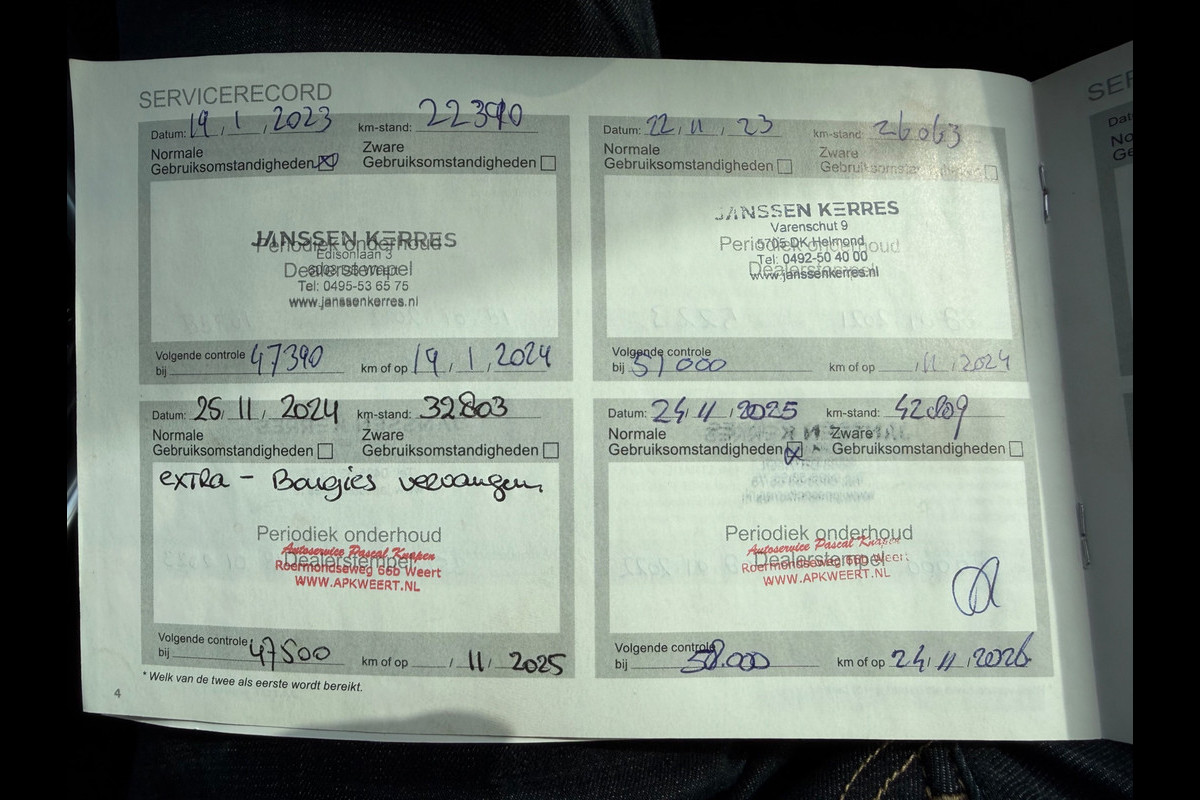 SERVICERECORD
Datum: 19, 1, 2023 km-stand: 22390
Normale Gebruiksomstandigheden ☒ Zware Gebruiksomstandigheden ☐
JANSSEN KERRES
Periodiek onderhoud
Edisonlaan 3
Dealerstempel
Tel: 0495-53 65 75
www.janssenkerres.nl
Volgende controle bij 47390 km of op 19, 1, 2024
Datum: 22, 11, 23 km-stand: 26063
Normale Gebruiksomstandigheden ☐ Zware Gebruiksomstandigheden ☐
JANSSEN KERRES
Varenschut 9
Periodiek onderhoud
5705 DK Helmond
Tel: 0492-50 40 00
Dealerstempel
www.janssenkerres.nl
Volgende controle bij 51000 km of op , 11, 2024
Datum: 25, 11, 2024 km-stand: 32803
Normale Gebruiksomstandigheden ☐ Zware Gebruiksomstandigheden ☐
extra - Bougies vervangen,
Periodiek onderhoud
Autoservice Pascal Knapen
Dealerstempel
Roermondseweg 66b Weert
WWW.APKWEERT.NL
Volgende controle bij 47500 km of op , 11, 2025
Datum: 24, 11, 2025 km-stand:
Normale Gebruiksomstandigheden ☒ Zware Gebruiksomstandigheden ☐
Periodiek onderhoud
Autoservice Pascal Knapen
Dealerstempel
Roermondseweg 66b Weert
WWW.APKWEERT.NL
Volgende controle bij 58.000 km of op 24, 11, 2026
* Welk van de twee als eerste wordt bereikt.
4